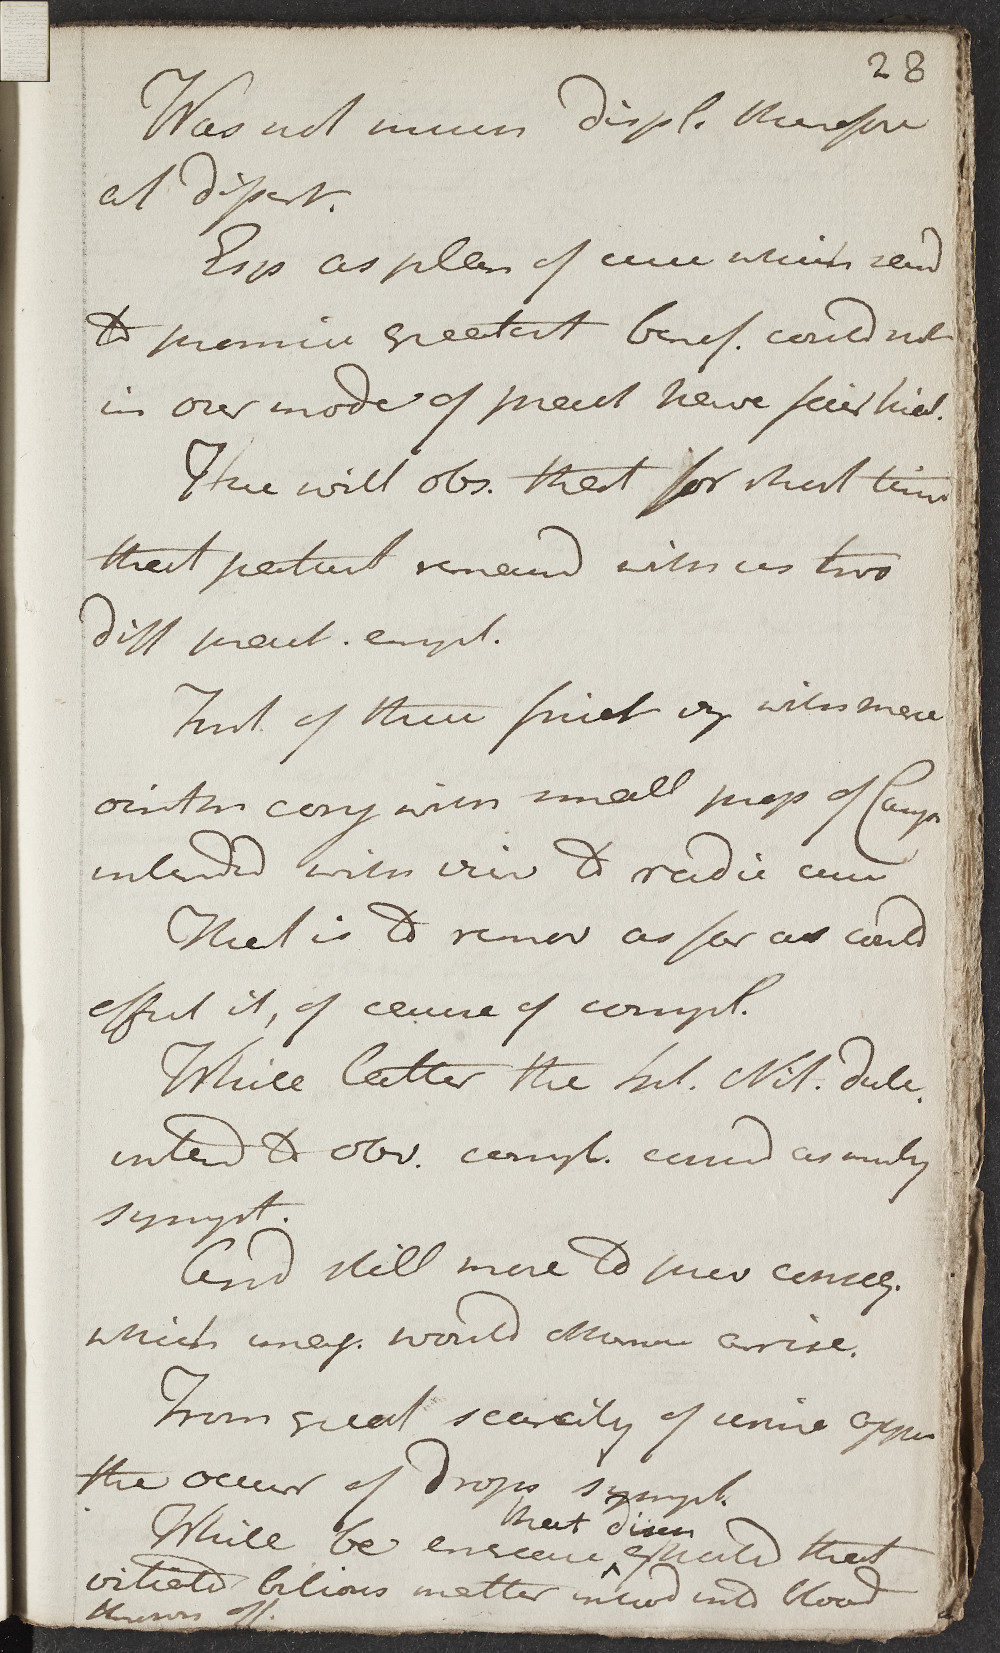 28
Was not much displ. therefore
at disart.
Esp as plan of cure which seem'd
to promise greatest benef. could not
in our mode of pract have fair trial.
You will obs. that for short time
that patient remaind with us two
diff pract. empl.
First of these frict by with merc
ointm conj with small prop of Camph
intended with view to radic cure
That is to remov as far as could
effect it, of cause of compl.
While latter the Sp. Nit. dulc.
intend to obv. compl. consid as merely
sympt.
And still more to prev conseq.
which imag. would otherwise arise.
From great scarcity of urine appre
the occurr of Drops sympt.
that disch
While be increase expected that
vitiated bilious matter introd into blood
thrown off.